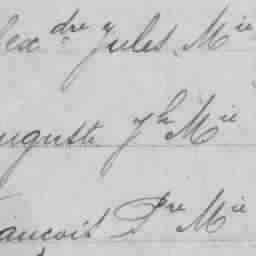 lexdre Jules Mie
uguste Jh Mie
rançois Pre Mie